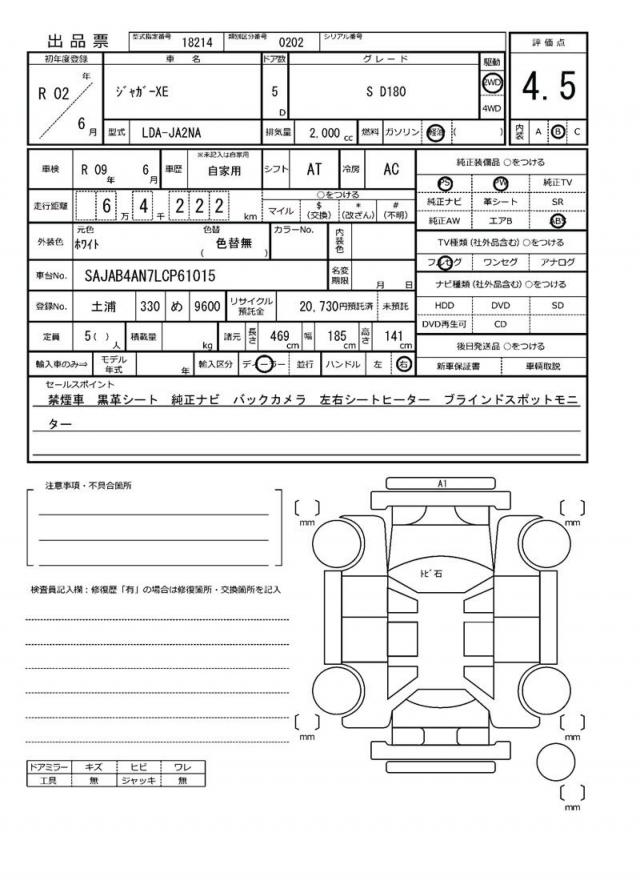 出品票 型式指定番号 18214 類別区分番号 0202 シリアル番号
初年度登録 車名 ドア数 グレード 駆動 評価点
R 02 年 6 月 ｼﾞｬｶﾞｰXE 5 D S D180 2WD 4WD 4.5
型式 LDA-JA2NA 排気量 2,000 cc 燃料 ガソリン 軽油 ( ) 内装 A B C
車検 R 09 年 6 月 車歴 ※未記入は自家用 自家用 シフト AT 冷房 AC 純正装備品 ○をつける
PS PW 純正TV
走行距離 6 万 4 千 2 2 2 km ○をつける マイル $ (交換) * (改ざん) # (不明) 純正ナビ 革シート SR
純正AW エアB ABS
外装色 元色 ﾎﾜｲﾄ 色替 ( 色替無 ) カラーNo. 内装色 TV種類 (社外品含む) ○をつける
フルセグ ワンセグ アナログ
車台No. SAJAB4AN7LCP61015 名変期限 月 日 ナビ種類 (社外品含む) ○をつける
登録No. 土浦 330 め 9600 リサイクル預託金 20,730円預託済 未預託 HDD DVD SD
DVD再生可 CD
定員 5( ) 人 積載量 kg 諸元 長さ 469 cm 幅 185 cm 高さ 141 cm 後日発送品 ○をつける
輸入車のみ⇒ モデル年式 年 輸入区分 ディーラー 並行 ハンドル 左 右 新車保証書 車輌取説
セールスポイント
禁煙車 黒革シート 純正ナビ バックカメラ 左右シートヒーター ブラインドスポットモニ
ター
注意事項・不具合箇所
A1
mm mm
ﾄﾋﾞ石
検査員記入欄：修復歴「有」の場合は修復箇所・交換箇所を記入
mm mm
ドアミラー キズ ヒビ ワレ
工具 無 ジャッキ 無
mm